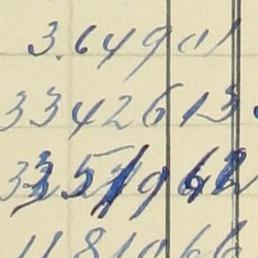 3.64901
3342613
3351962
1181066